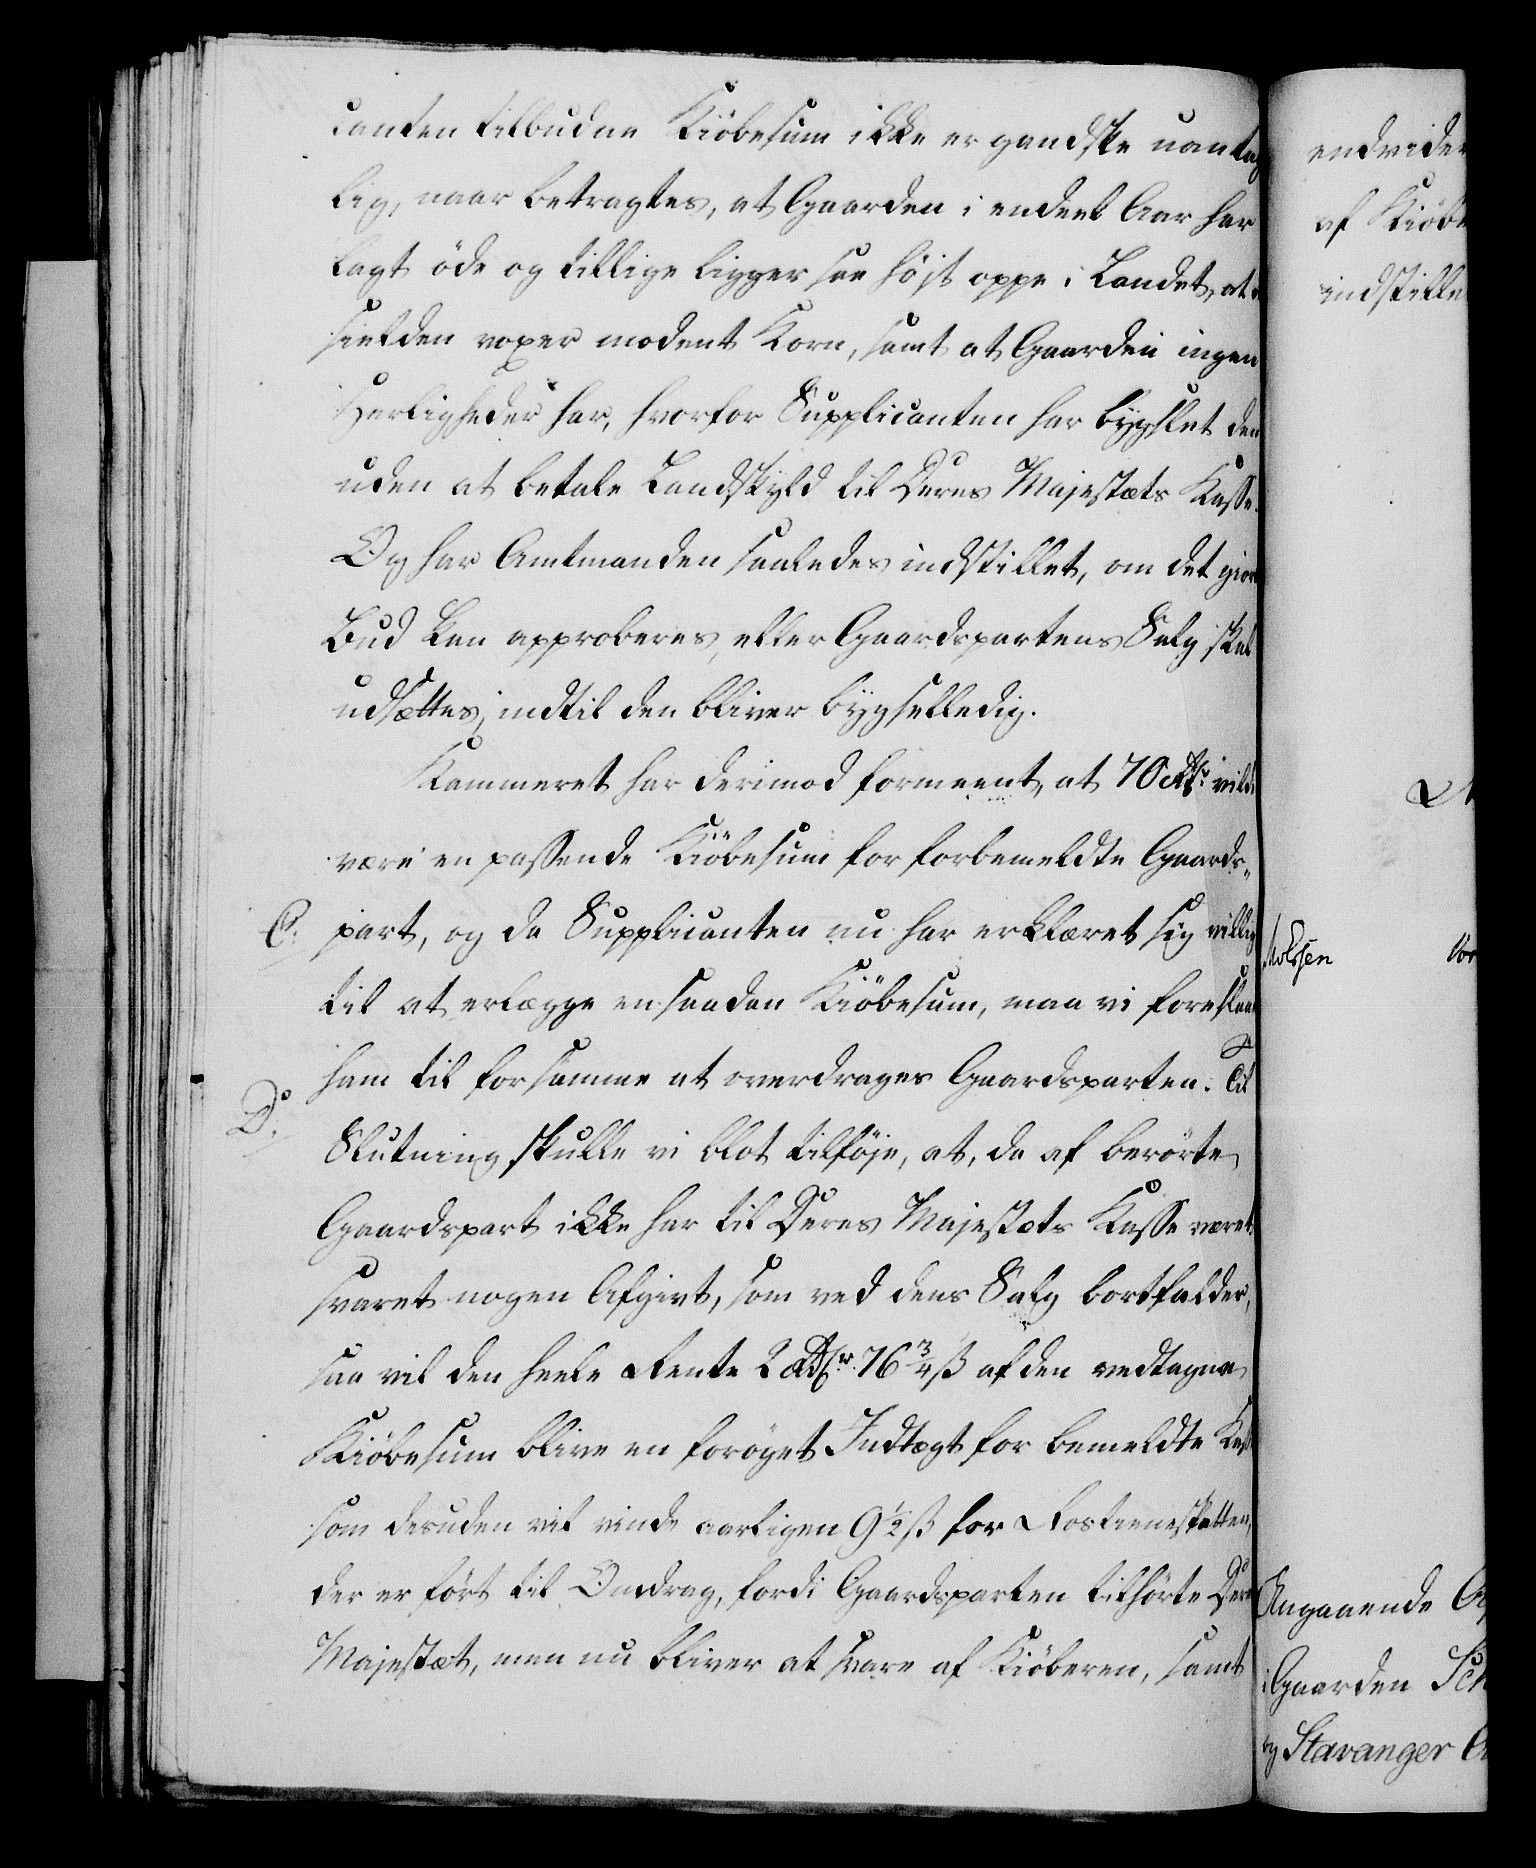 canten tilbudne Kiöbesum ikke er gandske uantag
lig, naar betragtes, at Gaarden i endeel Aar har
lagt öde og tillige ligger saa höjt oppe i Landet, at
sielden voxer modent Korn, samt at Gaarden ingen
Herligheder har, hvorfor Supplicanten har bygslet den
uden at betale Landskyld til Deres Majestæts Kasse.
Og har Amtmanden saaledes indstillet, om det giorte
Bud kan approberes, eller Gaardspartens Salg skal
udsættes, indtil den bliver bygselledig.
Kammeret har derimod formeent, at 70 Rdr. vilde
være en passende Kiöbesum for forbemeldte Gaards-
C. part, og da Supplicanten nu har erklæret sig villig
til at erlægge en saadan Kiöbesum, maa vi foreslaae
ham til for samme at overdrages Gaardsparten. Til
D.
Slutning skulle vi blot tilföje, at, da af berörte
Gaardspart ikke har til Deres Majestæts Kasse været
svaret nogen Afgivt, som ved dens Salg bortfalder,
saa vil den heele Rente 2 Rdr. 76 3/4 ß af den vedtagne
Kiöbesum blive en foröget Indtægt for bemeldte Kasse
som desuden vil vinde aarligen 9 1/2 ß for Rostieneskatten,
der er fört til Omdrag, fordi Gaardsparten tilhörte Deres
Majestæt, men nu bliver at svare af Kiöberen, samt
endvider
af Kiöbe
indstille
Angaaende
i Gaarden
og Stavanger